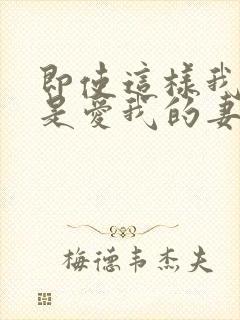 即使這樣我
是愛我的妻
梅德韦杰夫